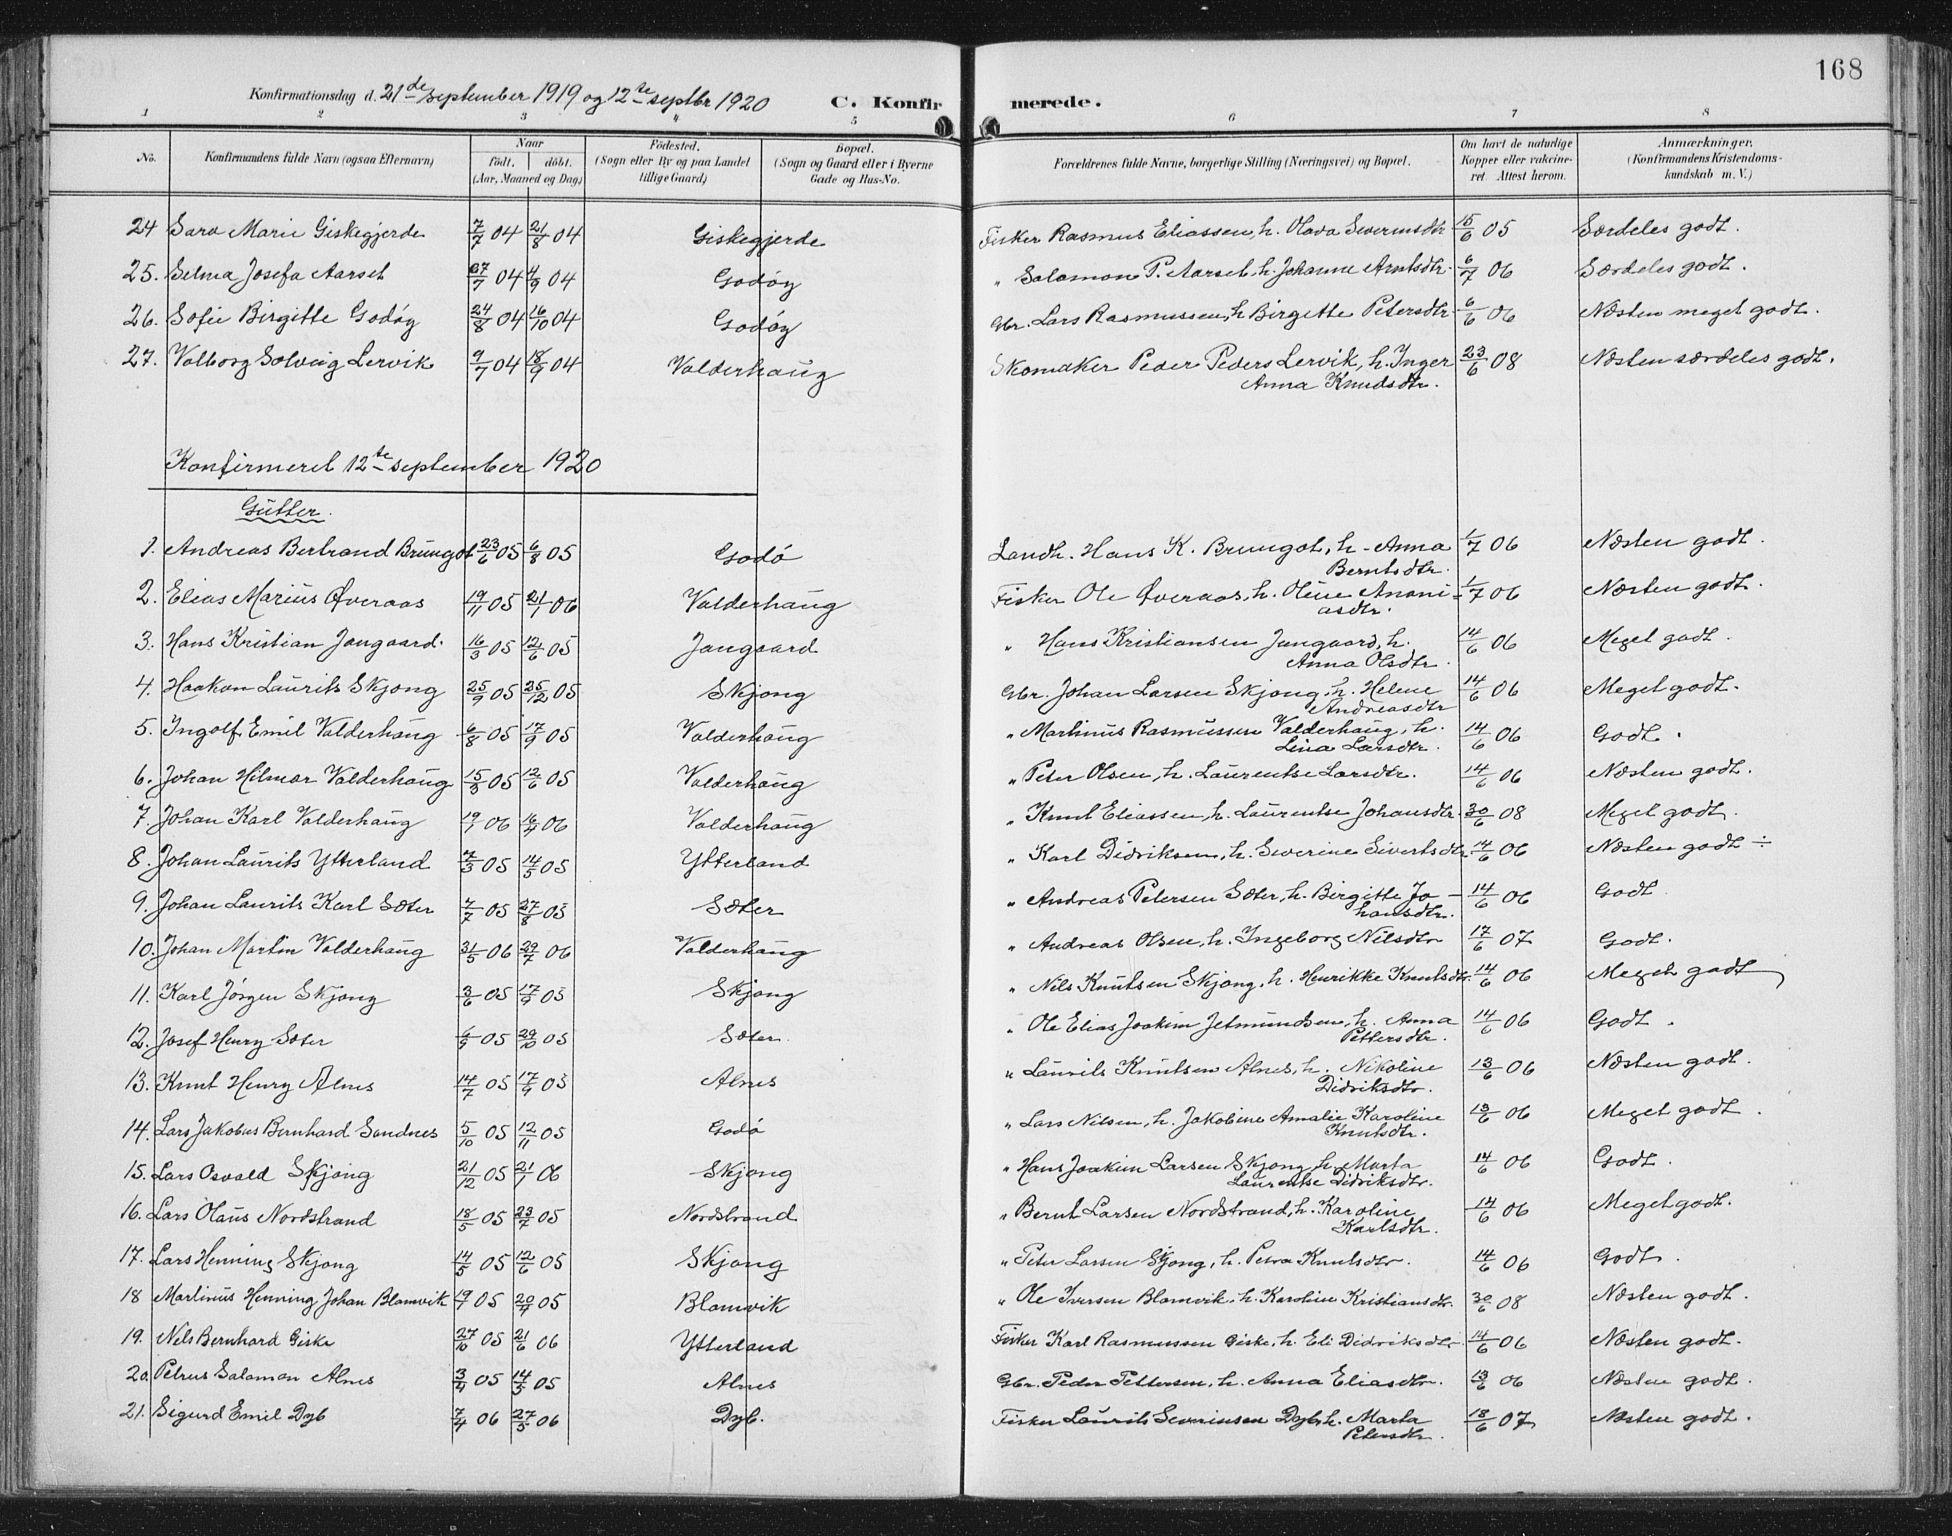 168
Konfirmationsdag d. 21de september 1919 og 12te septbr 1920 C. Konfirmerede.
1 2 3 4 5 6 7 8
No. Konfirmandens fulde Navn (ogsaa Efternavn) Naar født. døbt. (Aar, Maaned og Dag) Fødested. (Sogn eller By og paa Landet tillige Gaard) Bopæl. (Sogn og Gaard eller i Byerne Gade og Hus-No. Forældrenes fulde Navne, borgerlige Stilling (Næringsvei) og Bopæl. Om havt de naturlige Kopper eller vakcineret. Attest herom. Anmærkninger. (Konfirmandens Kristendomskundskab m. V.)
24 Sara Marie Giskegjerde 7/7 04 21/8 04 Giskegjerde Fisker Rasmus Eliassen, h. Olava Severinsdtr 15/6 05 Særdeles godt.
25. Selma Josefa Aarset 27/7 04 4/9 04 Godøy " Salomon P. Aarset, h. Johanne Arntsdtr. 6/7 06 Særdeles godt.
26. Sofie Birgitte Godøy 24/8 04 16/10 04 Godøy Gbr. Lars Rasmussen, h. Birgitte Petersdtr. 6/6 06 Næsten meget godt.
27. Valborg Solveig Lervik 9/7 04 18/9 04 Valderhaug Skomaker Peder Peders Lervik, h. Inger 23/6 08 Næsten særdeles godt.
Anna Knudsdtr.
Konfirmeret 12te september 1920
Gutter.
1. Andreas Bertrand Brungot 23/6 05 6/8 05 Godø Landh. Hans K. Brungot, h. Anna 1/7 06 Næsten godt.
Berntsdtr.
2. Elias Marius Øveraas 19/11 05 21/1 06 Valderhaug Fisker Ole Øveraas, h. Oline Anani= 1/7 06 Næsten godt.
asdtr.
3. Hans Kristian Jangaard. 16/3 05 12/6 05 Jangaard " Hans Kristiansen Jangaard, h. 14/6 06 Meget godt.
Anna Olsdtr.
4. Haakon Laurits Skjong 25/9 05 25/12 05 Skjong Gbr. Johan Larsen Skjong, h. Helene 14/6 06 Meget godt.
Andreasdtr
5. Ingolf Emil Valderhaug 6/8 05 17/9 05 Valderhaug " Martinus Rasmussen Valderhaug, h. 14/6 06 Godt.
Lina Larsdtr.
6. Johan Hilmar Valderhaug 15/3 05 12/6 05 Valderhaug " Peter Olsen, h. Laurentse Larsdtr. 14/6 06 Næsten godt.
7. Johan Karl Valderhaug 19/1 06 16/4 06 Valderhaug " Knut Eliassen, h. Laurentse Johansdtr. 30/6 08 Meget godt.
8. Johan Laurits Ytterland 7/3 05 14/5 05 Ytterland " Karl Didriksen, h. Severine Sivertsdtr. 14/6 06 Næsten godt ÷
9. Johan Laurits Karl Sæter 7/7 05 27/8 05 Sæter " Andreas Petersen Sæter, h. Birgitte Jo- 14/6 06 Godt
hansdtr.
10. Johan Martin Valderhaug 31/5 06 29/7 06 Valderhaug " Andreas Olsen, h. Ingeborg Nilsdtr 17/6 07 Godt.
11. Karl Jørgen Skjong 3/6 05 17/9 05 Skjong " Nils Knutsen Skjong, h. Henrikke Knutsdtr. 14/6 06 Meget godt
12. Josef Henry Sæter 6/9 05 29/10 05 Sæter " Ole Elias Joakim Jetmundsen, h. Anna 14/6 06 Godt.
Pettersdtr.
13. Knut Henry Alnes 14/7 05 17/9 05 Alnes " Laurits Knutsen Alnes, h. Nikoline 13/6 06 Næsten godt.
Didriksdtr.
14. Lars Jakobus Bernhard Sandnes 5/10 05 12/11 05 Godø " Lars Nilsen, h. Jakobine Amalie Karoline 13/6 06 Meget godt.
Knutsdtr.
15. Lars Osvald Skjong 21/12 05 21/1 06 Skjong " Hans Joakim Larsen Skjong, h. Marta 14/6 06 Godt.
Laurentse Didriksdtr.
16. Lars Olaus Nordstrand 18/5 05 23/7 05 Nordstrand " Bernt Larsen Nordstrand, h. Karoline 14/6 06 Meget godt.
Karlsdtr.
17. Lars Henning Skjong 14/5 05 12/6 05 Skjong " Peter Larsen Skjong, h. Petra Knutsdtr. 14/6 06 Godt.
18 Martinus Henning Johan Blomvik 19/7 05 20/9 05 Blomvik " Ole Iversen Blomvik, h. Karoline Kristiansdtr. 30/6 08 Næsten godt.
19. Nils Bernhard Giske 27/10 05 21/6 06 Ytterland Fisker Karl Rasmussen Giske, h. Eli Didriksdtr. 14/6 06 Næsten godt.
20. Petrus Salomon Alnes 3/4 05 14/5 05 Alnes Gbr. Peder Pettersen, h. Anna Eliasdtr. 13/6 06 Næsten godt.
21. Sigurd Emil Dyb 7/4 06 27/5 06 Dyb. Fisker Laurits Severinsen Dyb, h. Marta 18/6 07 Næsten godt.
Petersdtr.